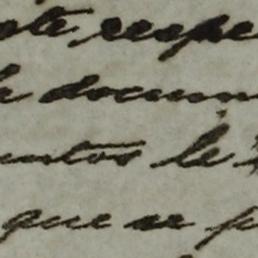 ste respe
a docum
untos le
que se p